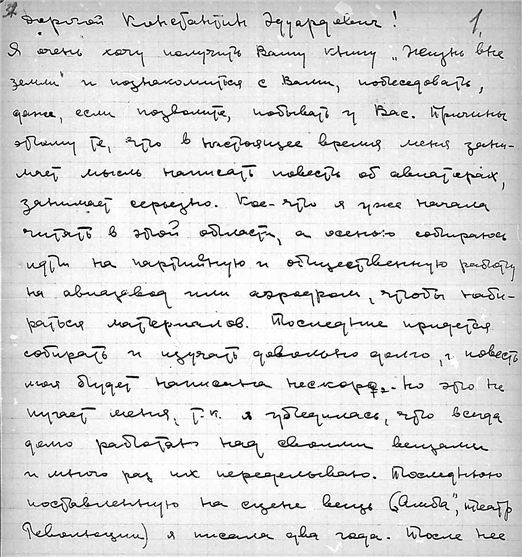 Дорогой Константин Эдуардович! 1,
Я очень хочу получить Вашу книгу „Жизнь вне
земли" и познакомиться с Вами, побеседовать,
даже, если позволите, побывать у Вас. Причины
этому те, что в настоящее время меня зани-
мает мысль написать повесть об авиаторах,
занимает серьезно. Кое-что я уже начала
читать в этой области, а осенью собираюсь
идти на партийную и общественную работу
на авиазавод или аэродром, чтобы наби-
раться материалов. Последние придется
собирать и изучать довольно долго, и повесть
моя будет написана нескоро. Но это не
пугает меня, т.к. я убедилась, что всегда
долго работаю над своими вещами
и много раз их переделываю. Последнюю
поставленную на сцене вещь („Амба", театр
Революции) я писала два года. После нее